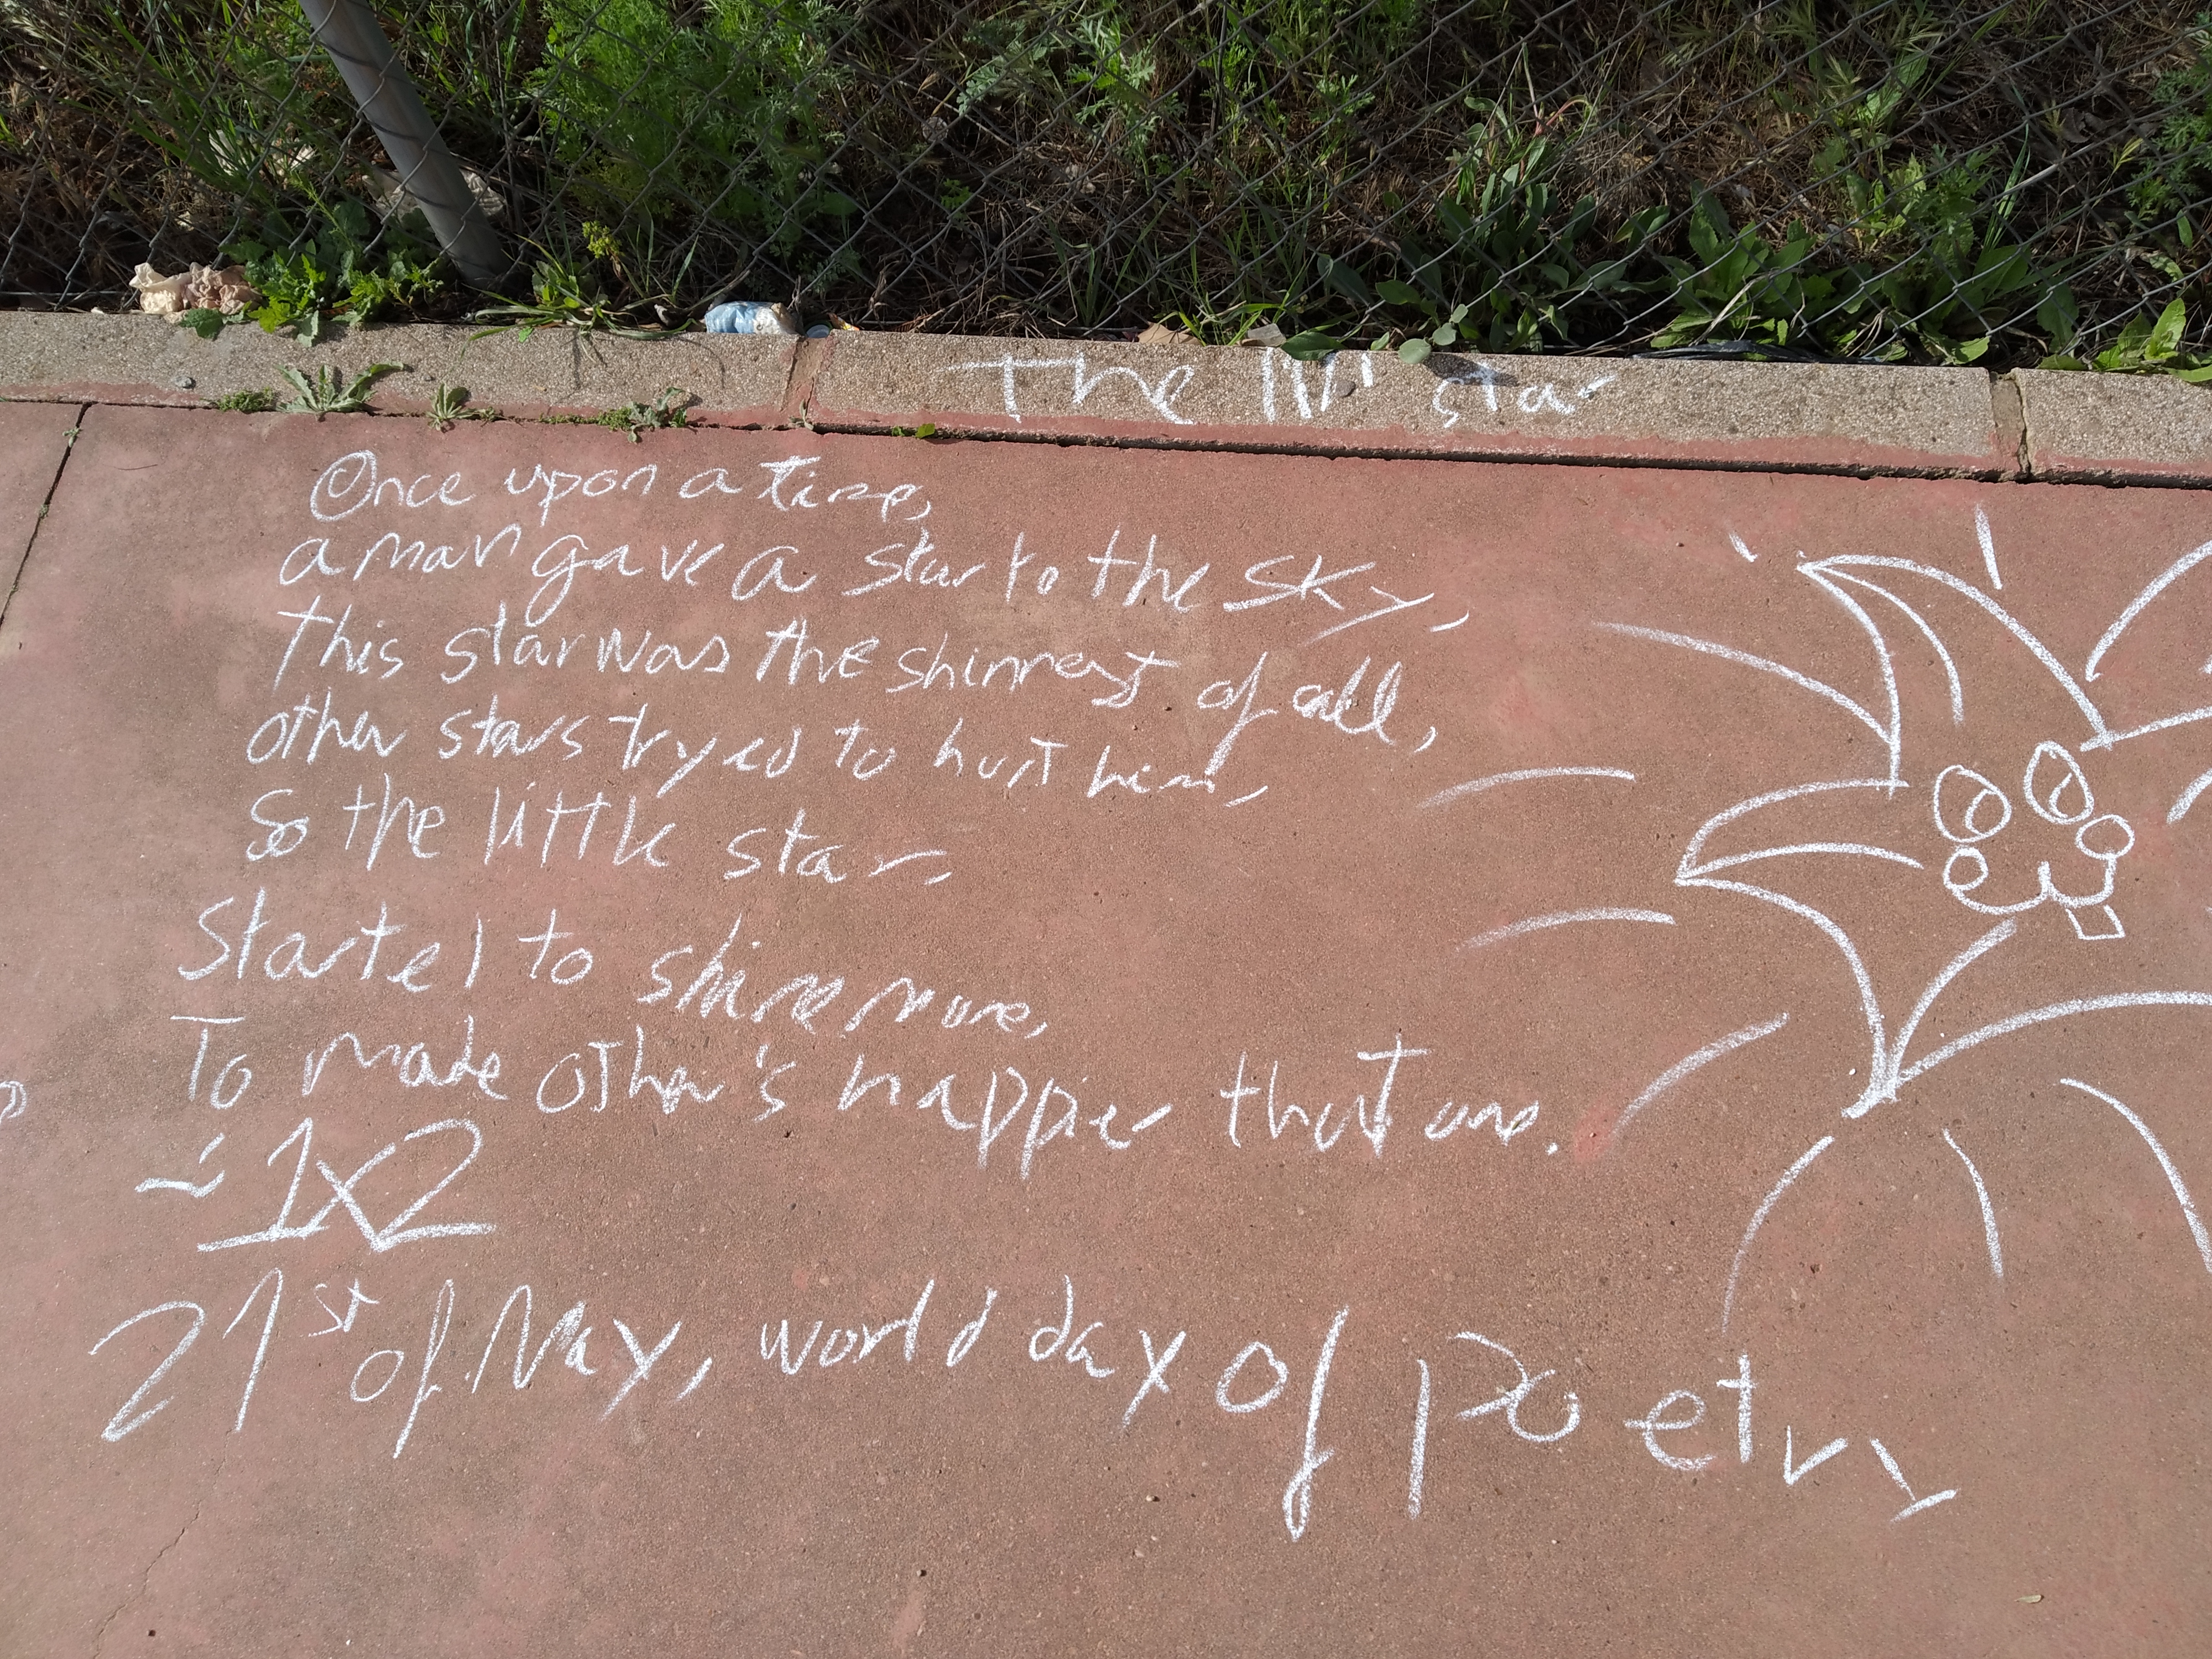 The lil' star
Once upon a time,
a man gave a star to the sky,
this star was the shinnest of all,
other stars tryed to hurt him,
So the little star,
Started to shine more,
To make other's happier that one.
1x2
21st of May, world day of poetry